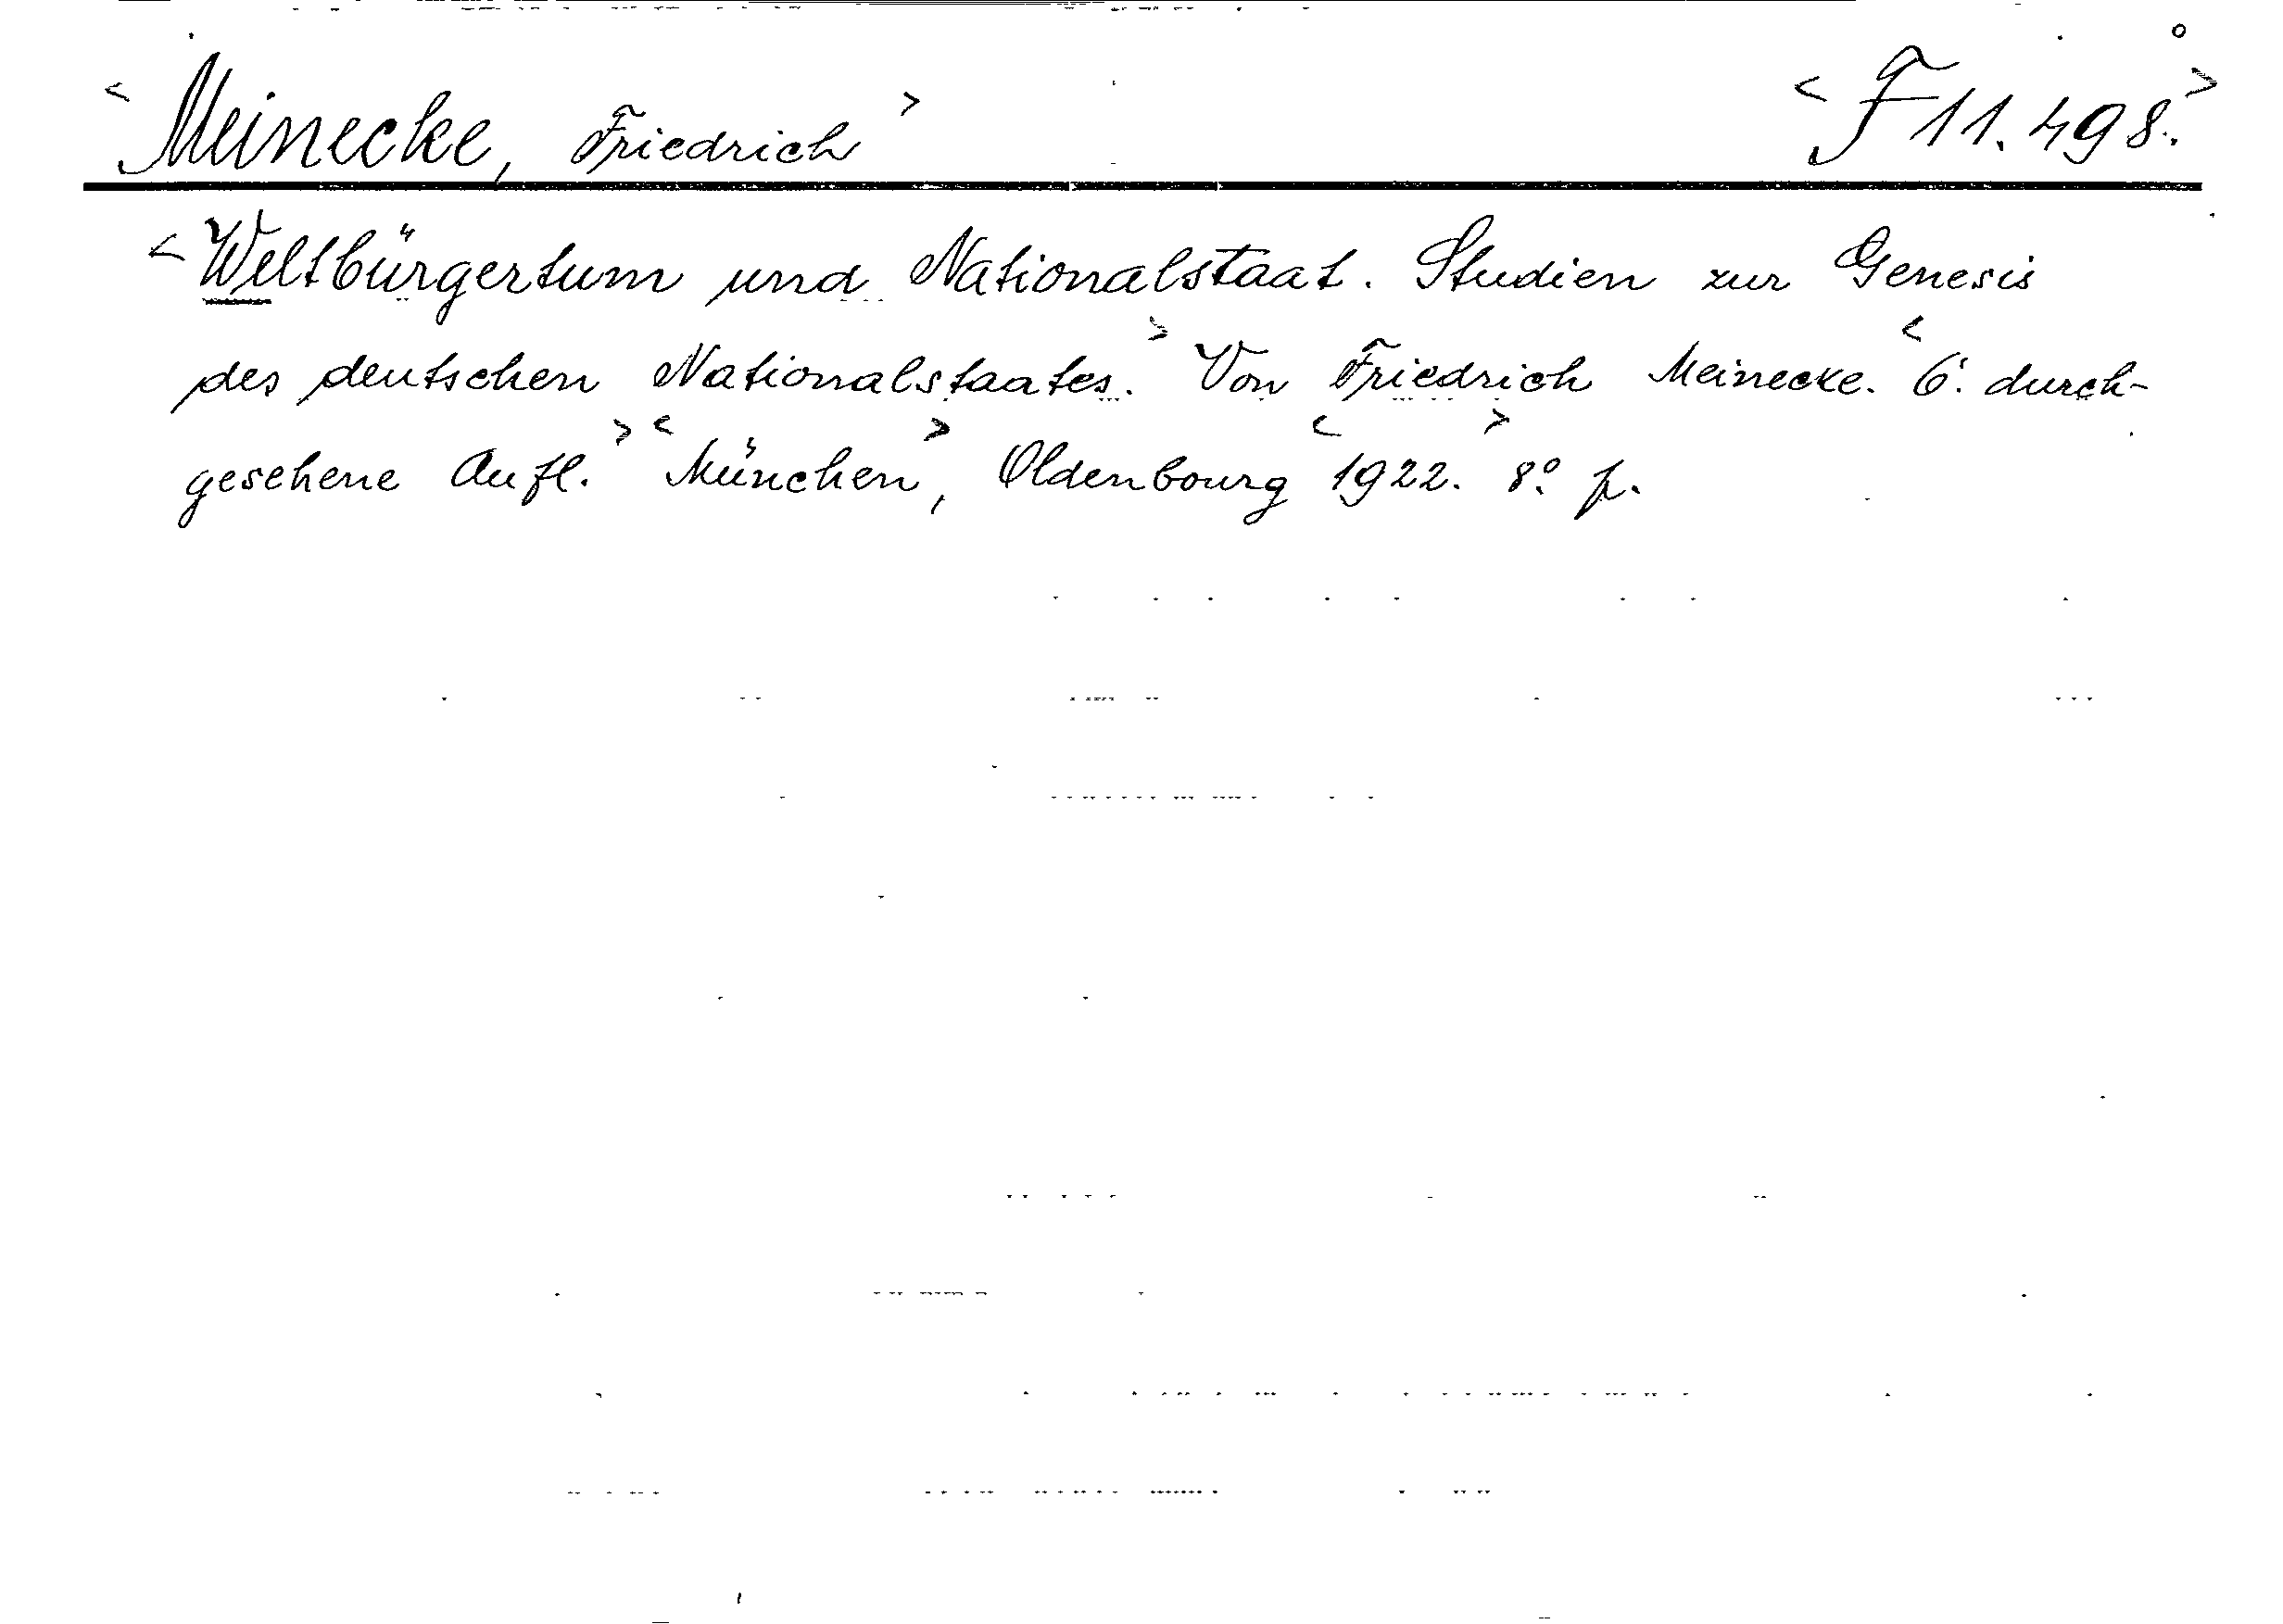 <Meinecke, Friedrich> <F 11.498.>
<Weltbürgertum und Nationalstaat. Studien zur Genesis
des deutschen Nationalstaates.> Von Friedrich Meinecke. <6. durch-
gesehene Aufl.> <München>, Oldenbourg <1922.> 8° p.